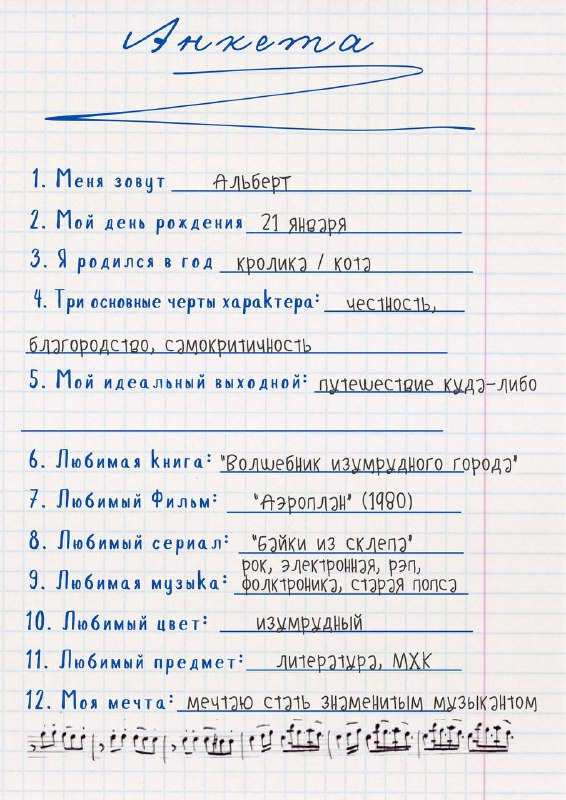 Анкета
1. Меня зовут Альберт
2. Мой день рождения 21 января
3. Я родился в год кролика / кота
4. Три основные черты характера: честность,
благородство, самокритичность
5. Мой идеальный выходной: путешествие куда-либо
6. Любимая книга: "Волшебник изумрудного города"
7. Любимый Фильм: "Аэроплан" (1980)
8. Любимый сериал: "Байки из склепа"
рок, электронная, рэп,
9. Любимая музыка: фолктроника, старая попса
10. Любимый цвет: изумрудный
11. Любимый предмет: литература, МХК
12. Моя мечта: мечтаю стать знаменитым музыкантом